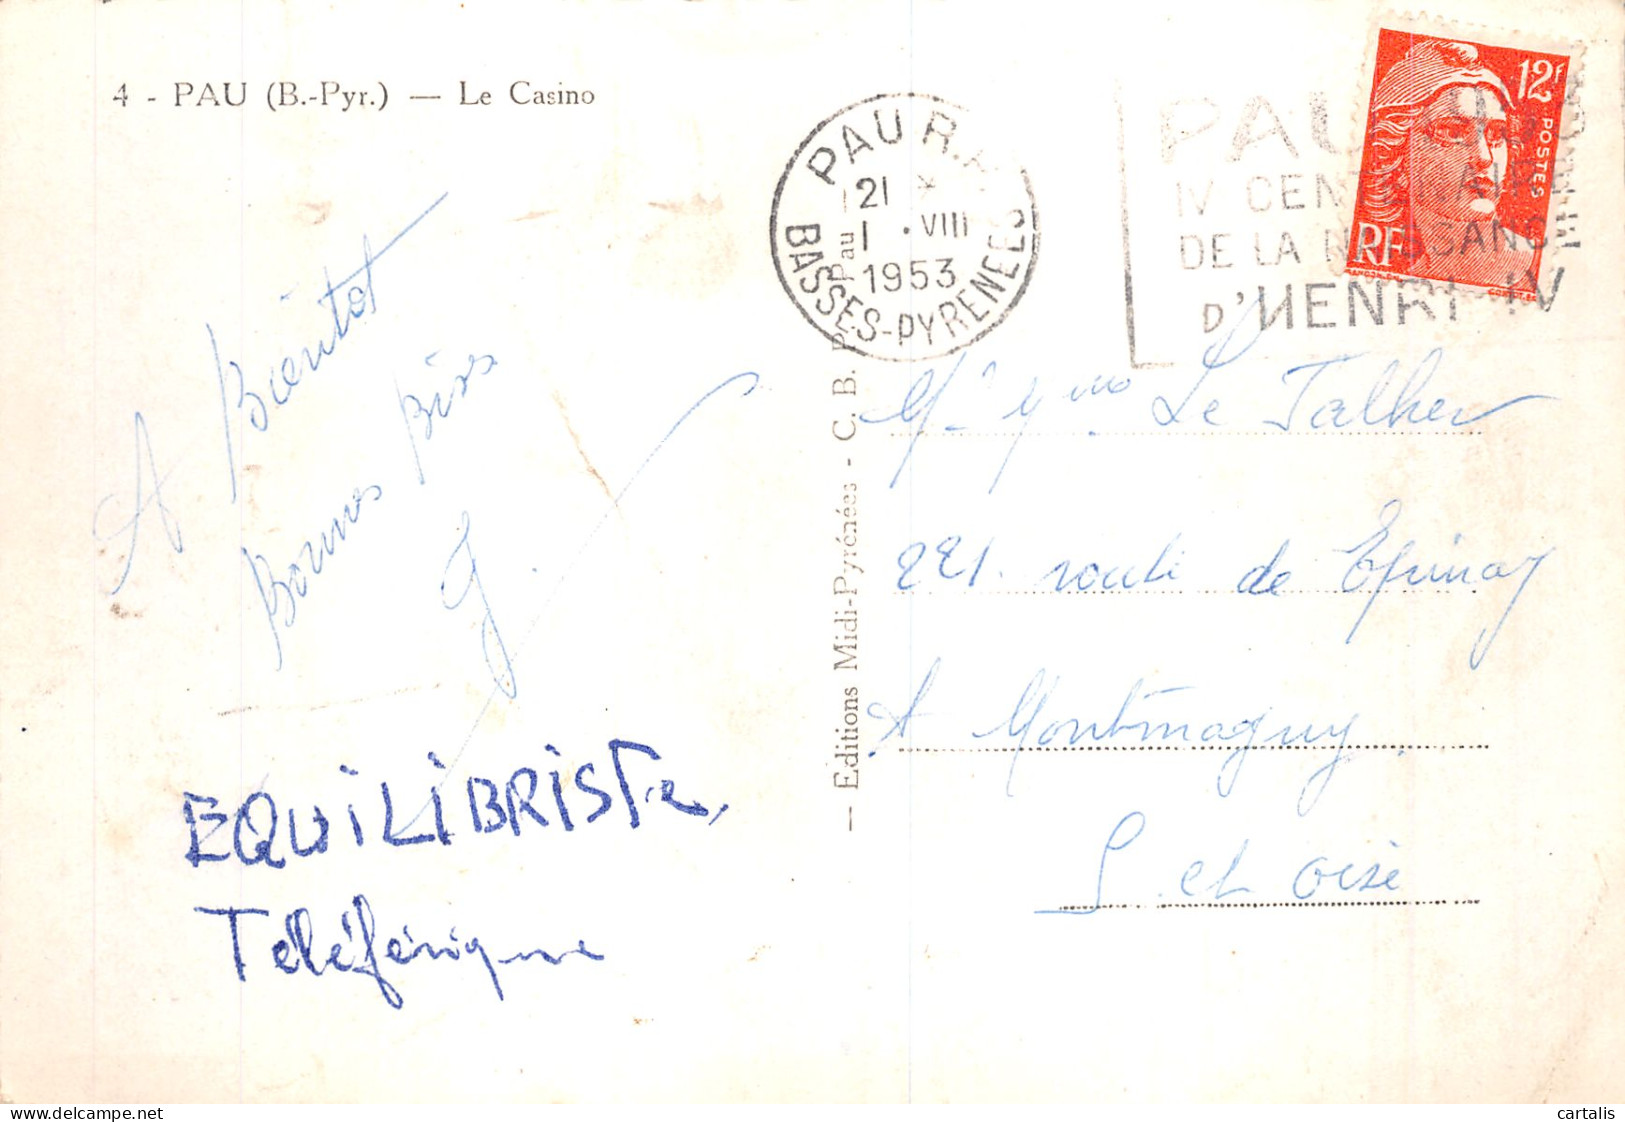 4 - PAU (B.-Pyr.) — Le Casino
PAU R.
21
1 . VIII
1953
BASSES-PYRENEES
PAU
IV CENTENAIRE
DE LA NAISSANCE
D'HENRI IV
12F
POSTES
RF
A Bientot
Bonnes Bises
G.
EQUILIBRISTe
Téléférique
— Editions Midi-Pyrénées - C. B. P. Pau
Le Talher
221. route de Epinay
A Montmagny
S. et Oise
cartalis